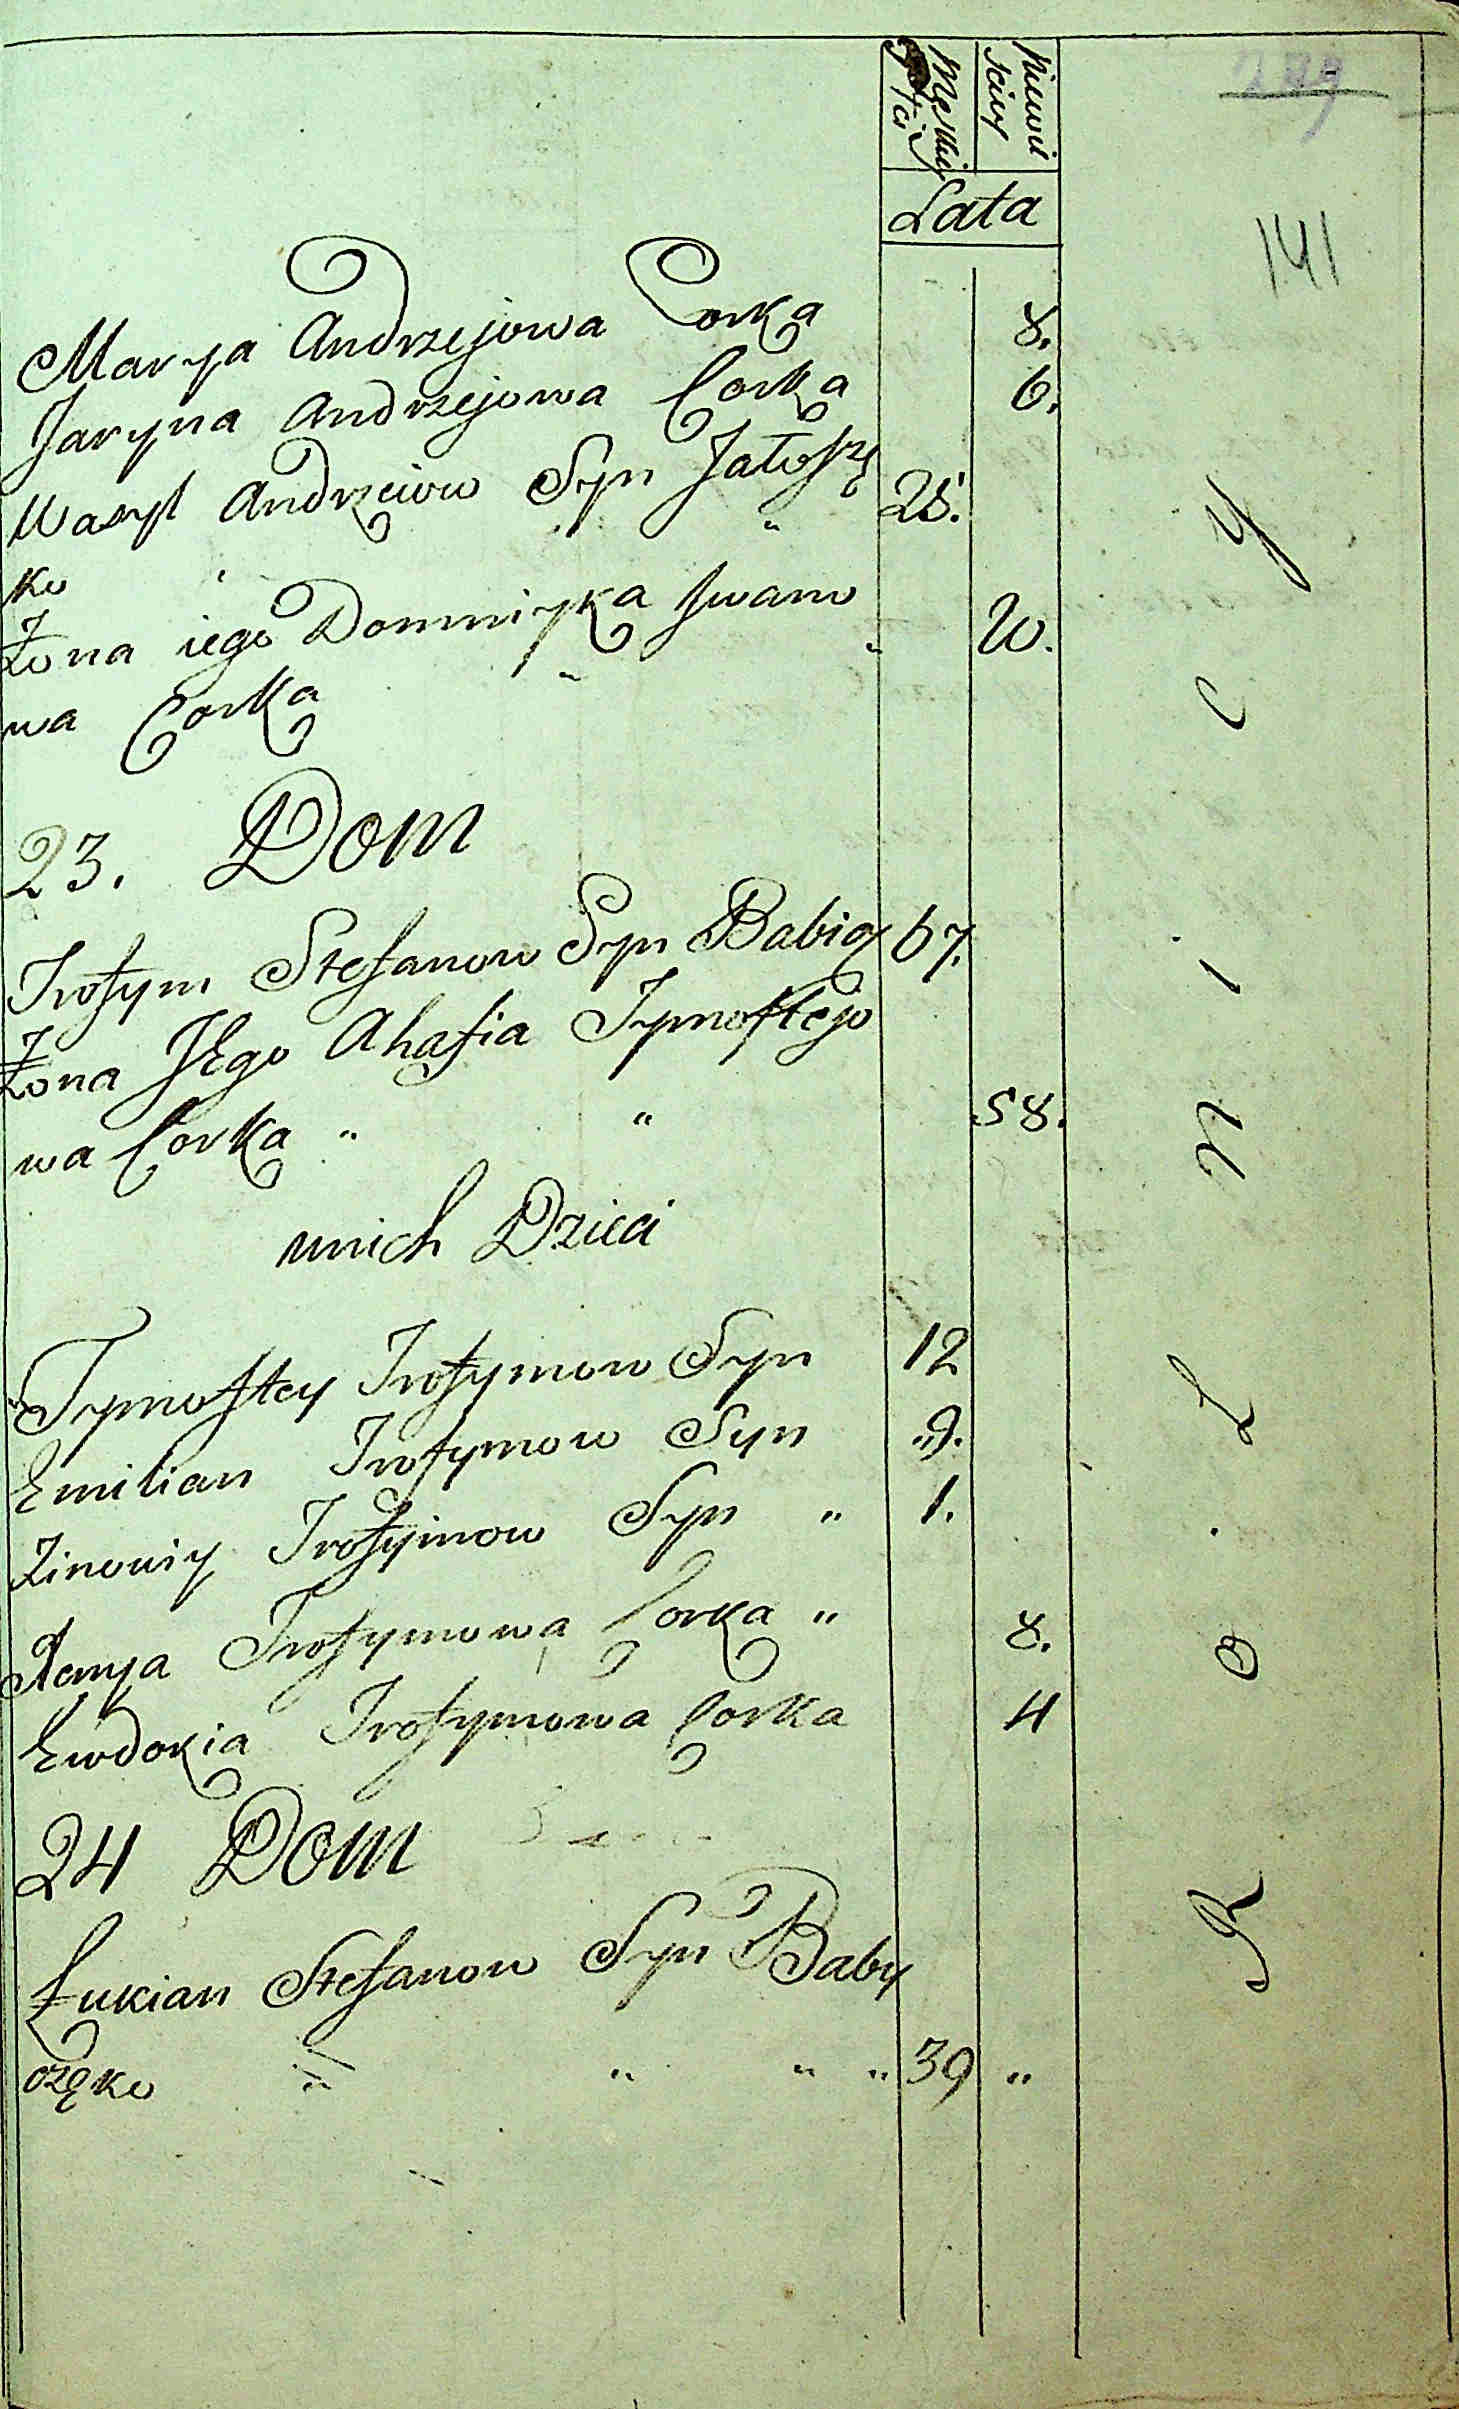 289
141
Męskiey
Niewieściey
Lata
Marya Andrzejowa Corka 8.
Jaryna Andrzejowa Corka 6.
Wasyl Andrzeiow Syn Jatoszę 25.
ko
Żona iego Domnicyka Iwano 20.
wa Corka
23. Dom
Trofym Stefanow Syn Babiy 67.
Żona JEgo Ahafia Tymoftejo
wa Corka " " 58.
unich Dzieci
Tymoftey Trofymow Syn 12
Emilian Trofymow Syn 9.
Zinowiy Trofymow Syn " 1.
Trofymowa Corka " 8.
Ewdokia Trofymowa Corka 4
24 Dom
Łukian Stefanow Syn Baby
ożęko " " " " 39 "
R o l n i c y